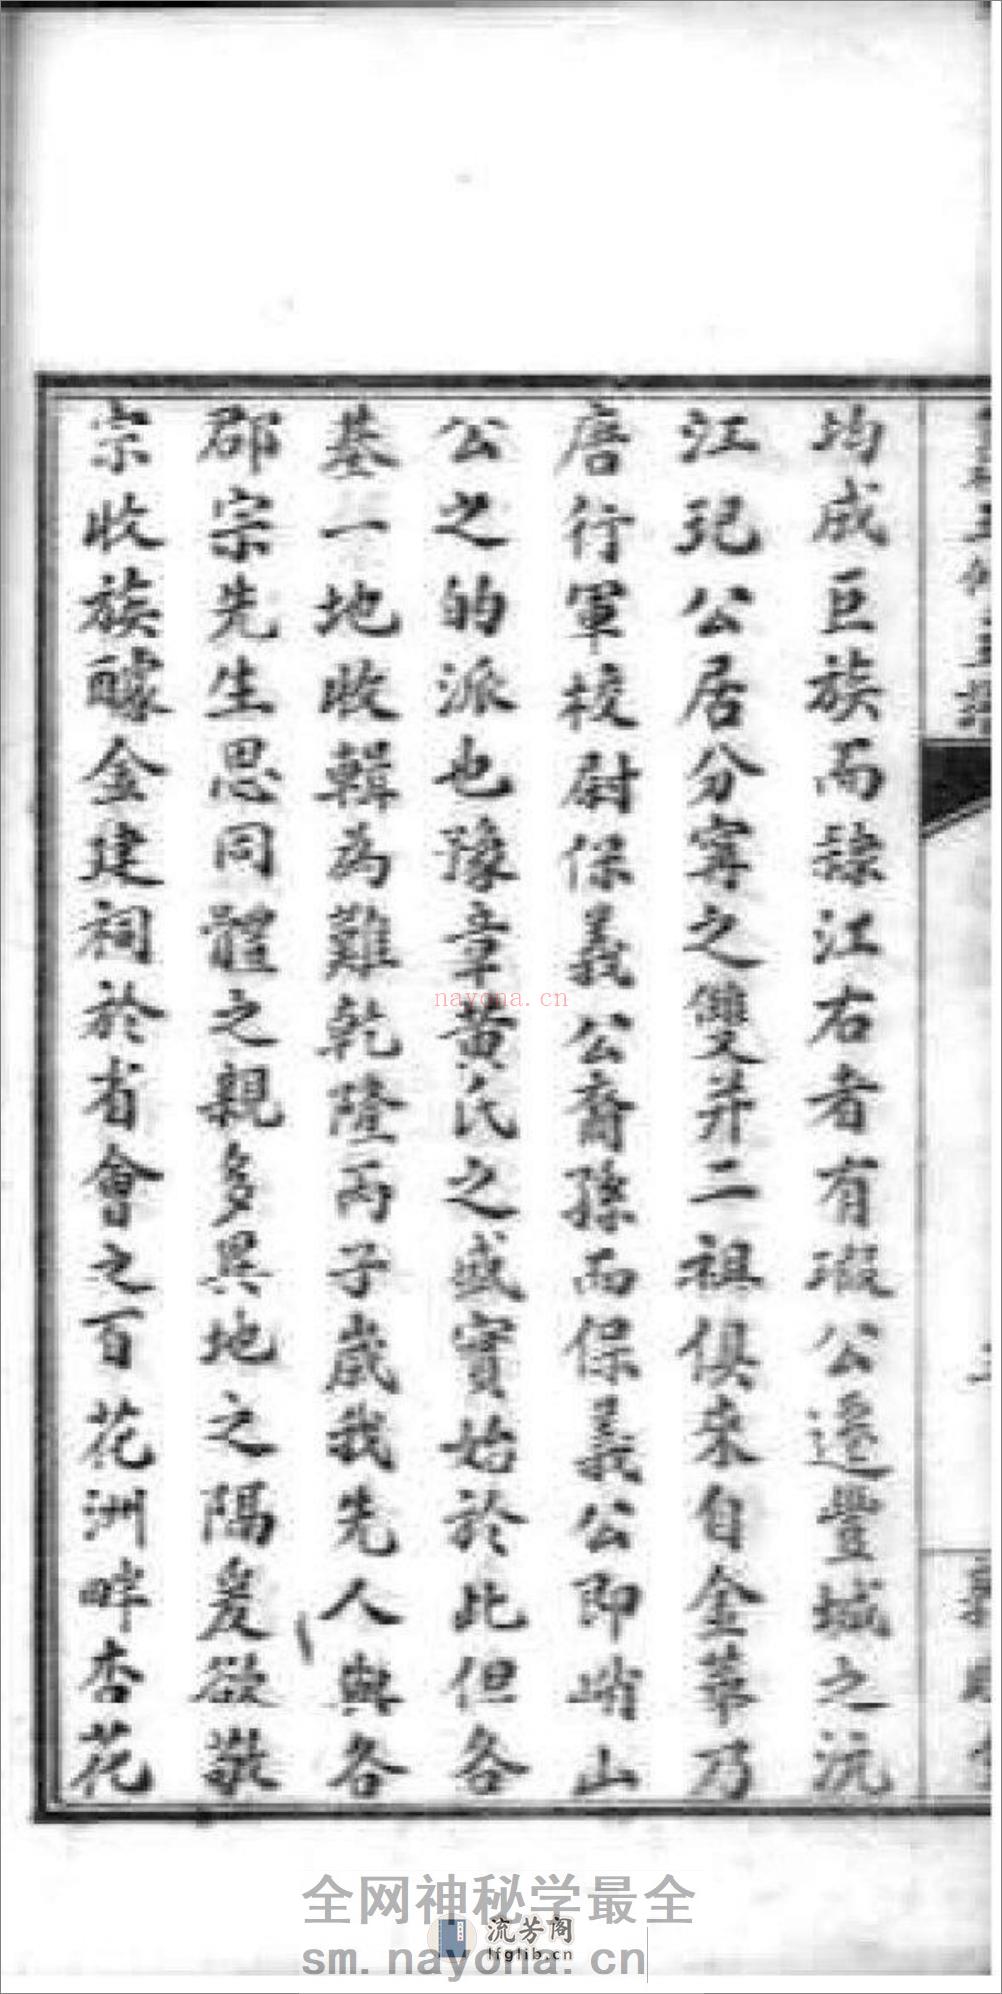 均成巨族而隸江右者有瑕公遷豐城之沅
江玘公居分寧之雙井二祖俱來自金華乃
唐行軍校尉保義公裔孫而保義公即峭山
公之的派也豫章黄氏之盛實始於此但各
基一地收輯為難乾隆丙子歲我先人與各
郡宗先生思同體之親多異地之隔爰欲敬
宗收族醵金建祠於省會之百花洲畔杏花
nayona.cn
全网神秘学最全
流芳阁
lfglib.cn
sm.nayona.cn